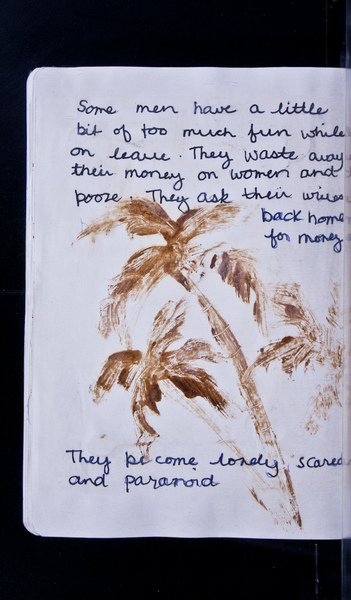 Some men have a little
bit of too much fun while
on leave. They waste away
their money on women and
pooze. They ask their wives
back home
for money
They become lonely, scared
and paranoid